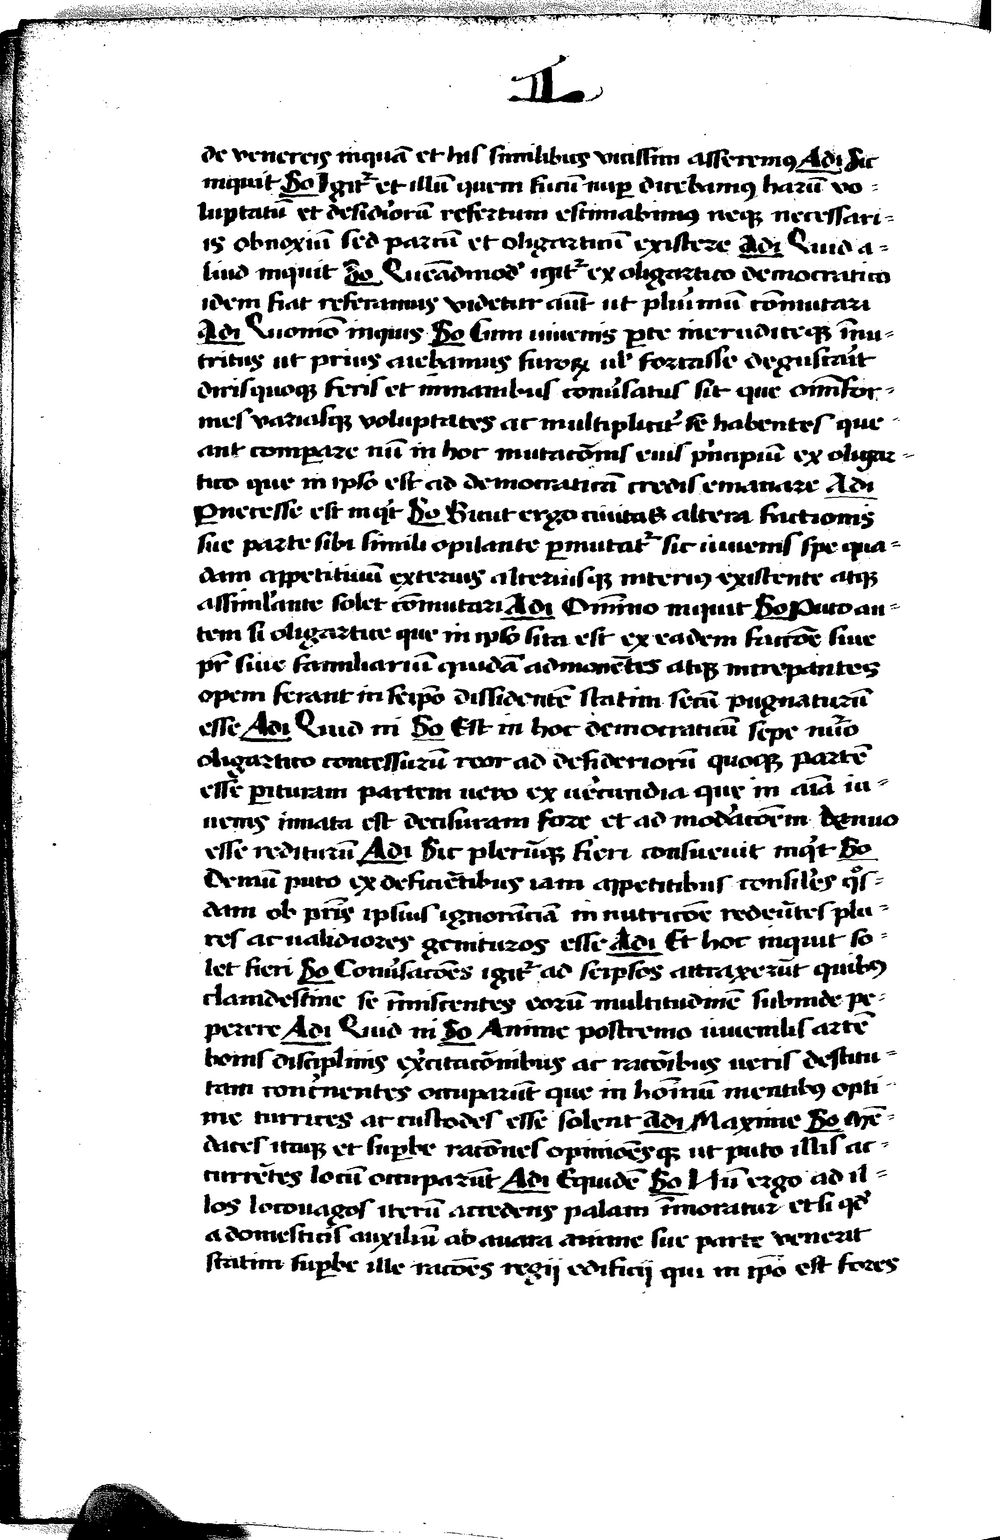 II
de venereis inquā et his similibus vicissim asseremꝰ Adi Sic
inquit So Igitᷣ et illū quem fucū nup̲ dicebamꝰ harū vo=
luptatū et desidioꝛū refertum estimabimꝰ neqꝫ necessari=
is obnoxiū sed parcū et oligarticū existere Adi Quid a=
liud inquit So Queādmodꝰ igitᷣ ex oligartico democratico
idem fiat referamus videtur aūt ut pluꝰimū cōmutari
Adi Quomō inquis So Cum iuuenis p̲te ineruditeqꝫ īnu=
tritus ut prius aiebamus furoꝝ ul' fortasse degustaūt
dirisquoqꝫ feris et inmanibus conuꝰsatus sit que om̄for=
mes variasqꝫ voluptates ac multiplicitᷣ se habentes que
ant comp̲are nū in hoc mutacōnis eius pꝰncipiū ex oligar=
tico que in ipso est ad democraticā credis emanare Adi
P̲necesse est inqꝰt So Sicut ergo ciuitas altera factionis
sue parte sibi simili opilante p̲mutatᷣ sic iuuenis spe qua=
dam appetitiuū exterius alteriusqꝫ interiꝰ existente atqꝫ
assimilꝰante solet cōmutari Adi Om̄ino inquit So Puto au=
tem si oligartice que in ipso sita est ex eadem faccōe siue
pr̄ siue familiariū quidā admonētes atqꝫ increpantes
opem ferant in seipō dissidentē statim secū pugnaturū
esse Adi Quid ni So Est in hoc democraticū sepe nūo
oligartico concessurū reor ad desideriorū quoqꝫ partē
esse p̲ituram partem uero ex uꝰecundia que in aīa iu=
uenis innata est decisuram fore et ad modꝰacōem denuo
esse rediturū Adi Sic plerūqꝫ fieri consueuit inqꝰt So
Demū puto ex deficiētibus iam appetitibus consilꝰes qͦs=
dam ob prīs ipsius ignoranciā in nutricōe redeūtes plu=
res ac ualidiores genituros esse Adi Et hoc inquit so=
let fieri So Conuꝰsacōes igitᷣ ad seipsos attraxerūt quibꝰ
clamdestine se īmiscentes eorū multitudinē subinde pe=
perere Adi Quid ni So Anime postremo iuuenilis artē
bonis disciplinis exꝰcitacōnibus ac racōibus ueris destitu=
tam contꝰnentes occuparūt que in hoīnū mentibꝰ opti
me tutrices ac custodes esse solent Adi Maxime So Mē=
daces itaqꝫ et sup̲be racōnes opinioēsqꝫ ut puto illis ac=
currētes locū occuparūt Adi Equidē So Nū ergo ad il=
los locouagos iterū accedens palam īmoratur et si qdꝰ
a domesticis auxiliū ab auara anime sue parte venerit
statim sup̲be ille racōes regij edificij qui in ip̄o est fores